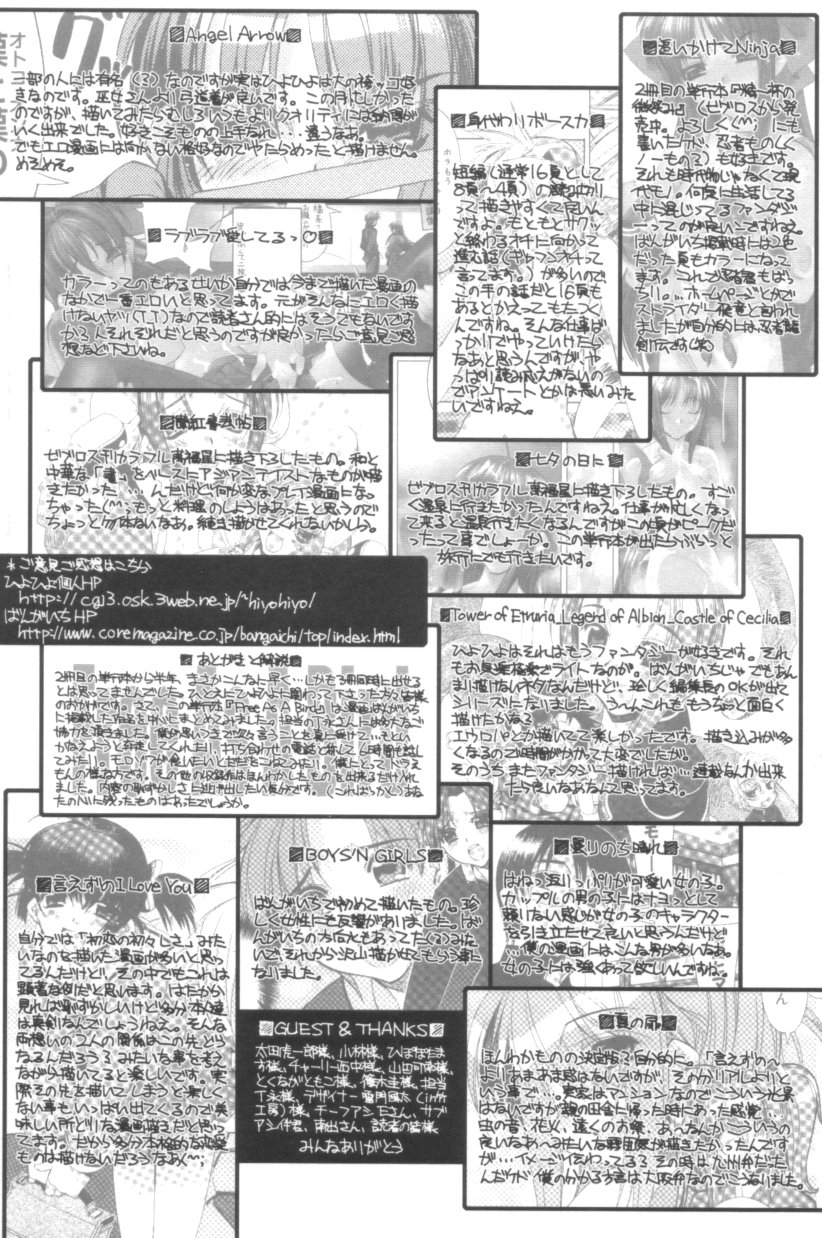 ▨Angel Arrow▨
一部の人には有名(?)なのですが実はひよひよは大の袴っコ好
きなのです。巫女さんより弓道着が良いです。この月忙しかった
のですが、描いてみたらむしろいつもよりクオリティには納得が
いく出来でした。好きこそものの上手なれ…違うなあ。
でもエロ漫画には向かない格好なのでやたらめったと描けません。
めそめそ。
▨追いかけてNinja▨
2冊目の単行本『精一杯の
微妙』(ゼブロスから発
売中。よろしく(^^))にも
書いたが、忍者もの(く
ノ一もの?)も好きです。
それも時代物じゃなくて現
代モノ。何度に生活してる
中に混じってるファンタジ
ーってのが良いですねえ。
ばんがいち掲載時には2色
だった頁もカラーになって
ます。これで忍者君もばっ
ちり。…ホームページとかで
ストライダー飛竜と言われ
ましたが自分的には忍者龍
剣伝です(笑)
▨身代わりボースカ▨
短編(通常16頁として
8頁~4頁)の
って描きやすくて良いん
ですよ。もともとサクッ
と終わるオチに向かって
進む話(ギャフンオチって
言ってます。)が多いので
この手の話だと16頁も
あるとかえってもたつく
んですね。そんな仕事ば
っかりでやっていけたら
なあと思うんですが、や
っぱり読み応えがないの
でアンケートとかは悪いみた
いですねえ。
▨ラブラブ愛してるっ♡▨
カラーってのもあるせいか自分では今まで描いた漫画の
なかで一番エロいと思ってます。元がそんなにエロく描
けないヤツ(TT)なので読者さん的にはそうでもないです
かね?それぞれだと思うのですが良かったらご意見ご感
想など下さいね。
ゼブロス刊カラフル萬福星に描き下ろしたもの。和と
中華な「書」をベースにアジアンテイストなものが描
きたかった……んだけど何か変なプレイ漫画にな
ちゃった(^^;もっと料理のしようはあったと思うので
ちょっと勿体ないなあ。続き描かせてくれないかしら。
▨七夕の日に▨
ゼブロス刊カラフル萬福星に描き下ろしたもの。すご
く温泉に行きたかったんですねえ。仕事が忙しくなっ
て来ると温泉行きたくなるんですがこの頃がピークだ
ったって事でしょーか。この単行本が出たらふらっと
旅行にでも行きたいです。
*ご意見ご感想はこちら
ひよひよ個人HP
http://cgi3.osk.3web.ne.jp/~hiyohiyo/
ばんがいちHP
http://www.coremagazine.co.jp/bangaichi/top/index.html
▨Tower of Etruria_Legend of Albion_Castle of Cecilia▨
ひよひよはそれはもうファンタジーが好きです。それ
もお気楽極楽でライトなのが。ばんがいちじゃでもあん
まり描けないネタなんだけど、珍しく編集長のOKが出て
シリーズになりました。う~んこれももうちょっと面白く
描けたかな?
エウロパやとか描いてて楽しかったです。描き込みが多
くなるので時間がかかって大変でしたが。
そのうちまたファンタジー描ければ…連載なんか出来
たら良いなあなんて思ってます。
▨あとがきと解説▨
2冊目の単行本から半年、まさかこんなに早く…しかも3冊同時に出せる
とは思ってませんでした。ひとえにひよひよに関わって下さった方々皆様
のおかげです。さて、この単行本「Free As A Bird」は漫画ばんがいち
に掲載した作品を中心にまとめてみました。担当のT永さんには多大なご
協力を頂きました。僕が思いつきで変な言うことを真に受けて…もとい
かなえようと奔走してくれたり、打ち合わせの電話と称して6時間も話し
てみたり、モロゾフが食いたいとただをこねてみたり。僕にとってドラえ
もんの様な方です。その他の収録作はほんわかしたものを出来るだけ入れ
ました。内容の恥ずかしさに逃げ出したい気分です。(こればっかし)あな
たの心に残ったものはあったでしょうか。
▨言えずのI Love You▨
自分では「初恋の初々しさ」みた
いなのを描いた漫画が多いと思っ
てるんだけど、その中でもこれは
顕著な例だと思います。はたから
見れば恥ずかしいけど多分本人達
は真剣なんでしょうねえ。そんな
両想いの2人の関係はこの先どう
なるんだろう?みたいな事を考え
ながら描いてると楽しいです。実
際その先を描いてしまうと楽しく
ない事もいっぱい出てくるので美
味しい所どりな漫画描きだと思っ
てます。だから多分本格的な恋愛
ものは描けないだろうなあ(^^;
▨BOYS'N GIRLS▨
ばんがいちで初めて描いたもの。珍
しく女性にも反響がありました。ば
んがいちの方向もあってた(?)みた
いで、それから沢山描かせてもらう事に
なりました。
▨GUEST & THANKS▨
太田虎一郎様、小林様、ひなたま
す様、チャーリー西中様、山田可南様、
とくながともこ様、榎木圭様、担当
T永様、デザイナー雷門風太(inH
工房)様、チーフアシ正さん、サブ
アシ伴君、南出さん、読者の皆様
みんなありがとう
▨曇りのち晴れ▨
はねっ返りっぷりが可愛い女の子。
カップルの男の子にはナヨっとして
頼りない感じが女の子のキャラクター
を引き立たせて良いと思うんだけど
…僕の漫画にはこんな男が多いなあ。
女の子には強くあって欲しいんですね。
▨夏の扉▨
ほんわかものの決定版?自分的に。「言えずの~」
よりあまあま感はないですが、その分リアルよりと
いう事で…。実家はマンションなのでこういう光景
はないですが親の田舎に帰った時にあった感覚…
虫の音、花火、遠くのお祭、あ~なんかこういうの
良いなあ~みたいな雰囲気が描きたかったんです
が…イメージ伝わってる?その時は九州弁だった
んだけど、僕の分かる方言は大阪弁なのでこうなりました。